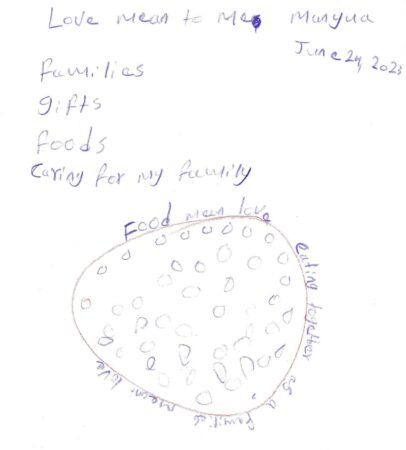 Love mean to me Manyua
June 24, 2023
families
gifts
foods
Caring for my family
Food mean love
eating together
as a families mean love